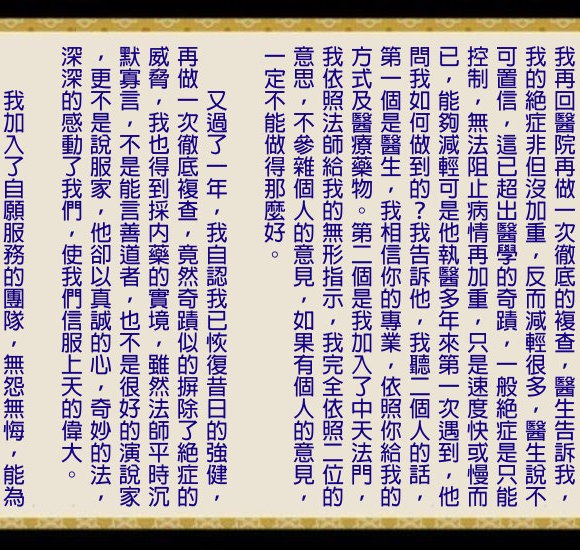 我再回醫院再做一次徹底的複查，醫生告訴我，
我的絕症非但沒加重，反而減輕很多，醫生說不
可置信，這已超出醫學的奇蹟，一般絕症是只能
控制，無法阻止病情再加重，只是速度快或慢而
已，能夠減輕可是他執醫多年來第一次遇到，他
問我如何做到的？我告訴他，我聽二個人的話，
第一個是醫生，我相信你的專業，依照你給我的
方式及醫療藥物。第二個是我加入了中天法門，
我依照法師給我的無形指示，我完全依照二位的
意思，不參雜個人的意見，如果有個人的意見，
一定不能做得那麼好。
又過了一年，我自認我已恢復昔日的強健，
再做一次徹底複查，竟然奇蹟似的摒除了絕症的
威脅，我也得到採內藥的實境，雖然法師平時沉
默寡言，不是能言善道者，也不是很好的演說家
，更不是說服家，他卻以真誠的心，奇妙的法，
深深的感動了我們，使我們信服上天的偉大。
我加入了自願服務的團隊，無怨無悔，能為